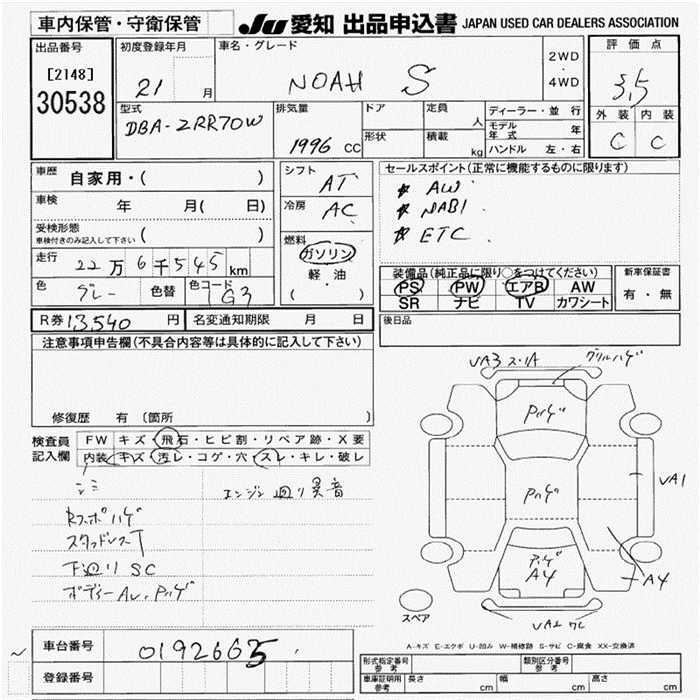 車内保管・守衛保管
JU 愛知 出品申込書 JAPAN USED CAR DEALERS ASSOCIATION
出品番号
[2148]
30538
初度登録年月
21 月
車名・グレード
NOAH S
2WD
・
4WD
評価点
3.5
外装 内装
C C
型式
DBA-ZRR70W
排気量
1996 CC
ドア
形状
定員
人
積載
kg
ディーラー・並 行
モデル年式 年
ハンドル 左・右
車歴
自家用・( )
車検
年 月( 日)
受検形態
車検付きのみ記入して下さい ( )
走行
22万6千545km
色
グレー
色替
色コード
1G3
シフト
AT
冷房
AC
燃料
ガソリン
軽・油
( )
セールスポイント(正常に機能するものに限ります)
☆ AW
☆ NABI
☆ ETC
装備品(純正品に限り○をつけてください)
PS PW エアB AW
SR ナビ TV カワシート
新車保証書
有・無
R券 13,540 円
名変通知期限 月 日
後日品
注意事項申告欄(不具合内容等は具体的に記入して下さい)
修復歴 有 〔箇所
検査員
記入欄
FW キズ・飛石・ヒビ割・リペア跡・X要
内装 キズ・汚レ・コゲ・穴・スレ・キレ・破レ
シミ
エンジン廻り異音
Rスポハゲ
スタッドレスT
下廻りSC
ボディーAU.Pハゲ
VA3 スリA
グリルハゲ
Pハゲ
Pハゲ
Pハゲ
A4
VA1
A4
スペア
A-キズ E-エクボ U-凹み W-補修跡 S-サビ C-腐食 XX-交換済
車台番号
0192665
登録番号
~
形式指定番号
参考
類別区分番号
参考
車庫証明用
参考
長さ cm
幅 cm
高さ cm